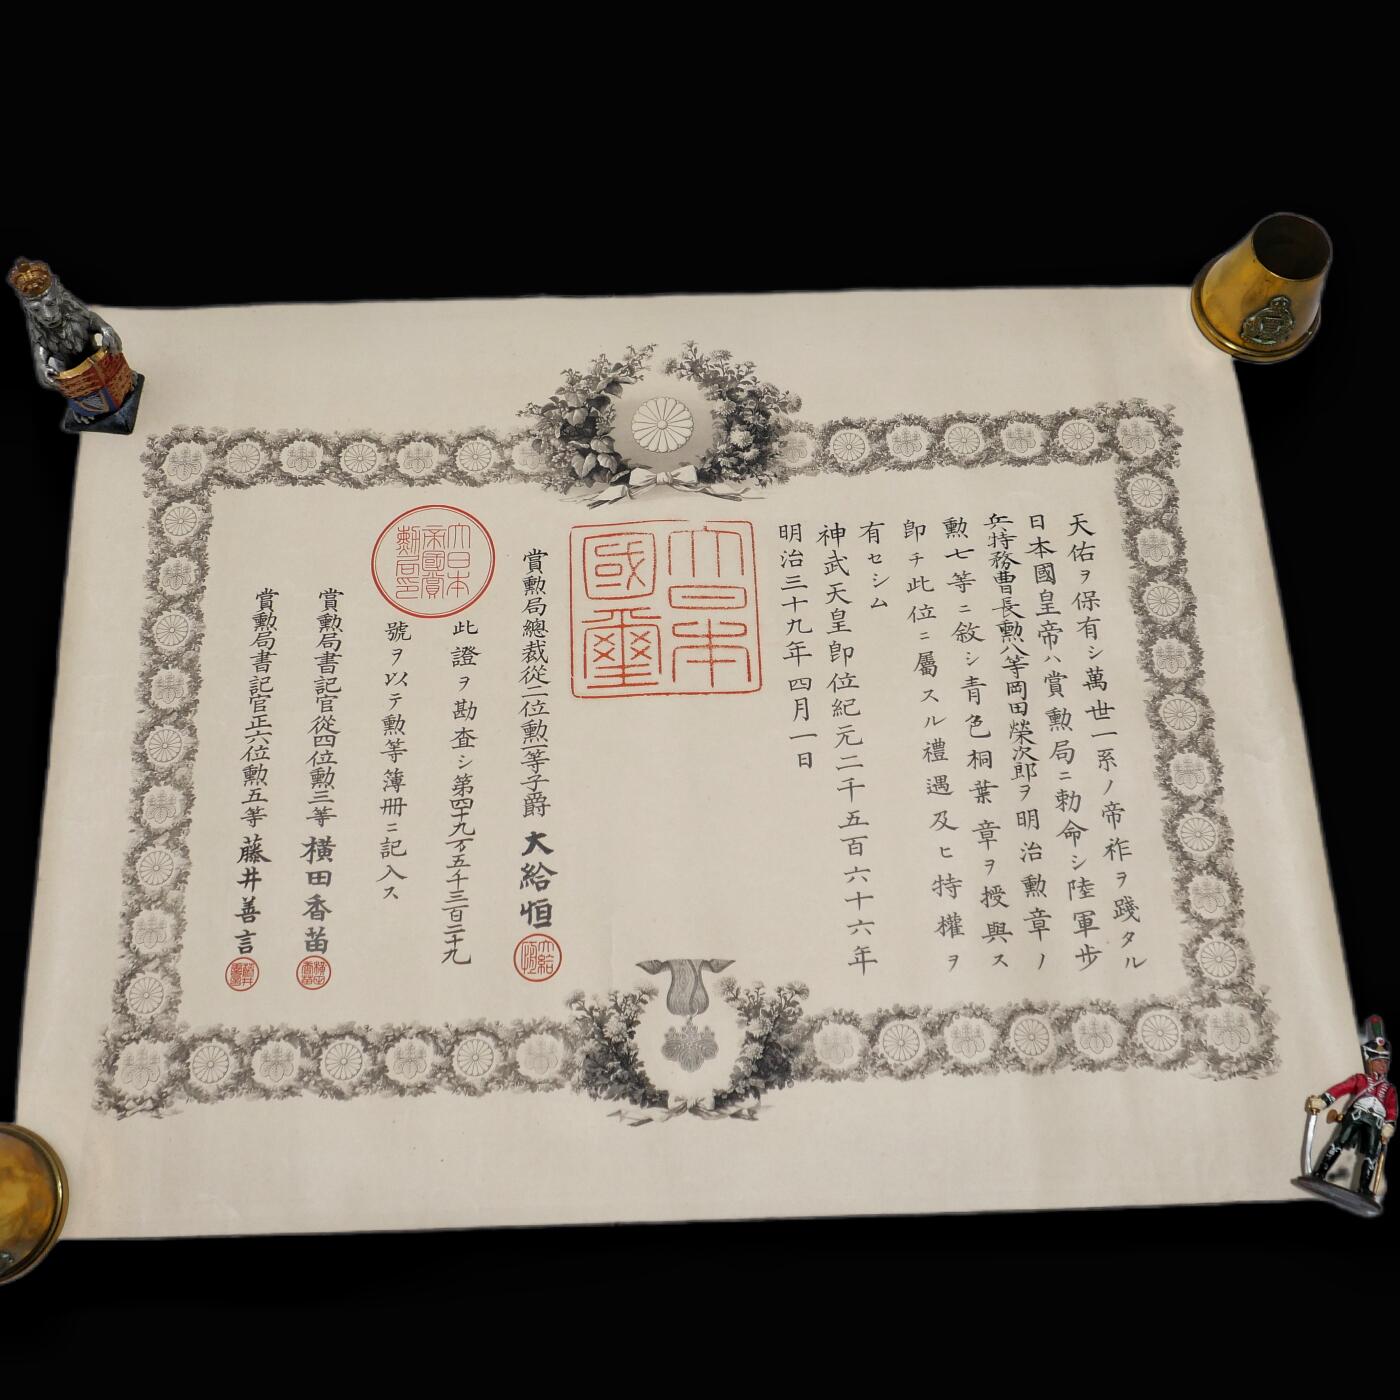 天佑ヲ保有シ萬世一系ノ帝祚ヲ踐タル
日本國皇帝ハ賞勲局ニ勅命シ陸軍步
兵特務曹長勲八等岡田榮次郎ヲ明治勲章ノ
勲七等ニ敘シ青色桐葉章ヲ授與ス
卽チ此位ニ屬スル禮遇及ヒ特權ヲ
有セシム
神武天皇卽位紀元二千五百六十六年
明治三十九年四月一日
大日本
國璽
賞勲局總裁從二位勲一等子爵大給恒
大日本
帝國賞
勲局印
此證ヲ勘査シ第四十九万五千三百二十九
號ヲ以テ勲等簿冊ニ記入ス
賞勲局書記官從四位勲三等橫田香苗
賞勲局書記官正六位勲五等藤井善言